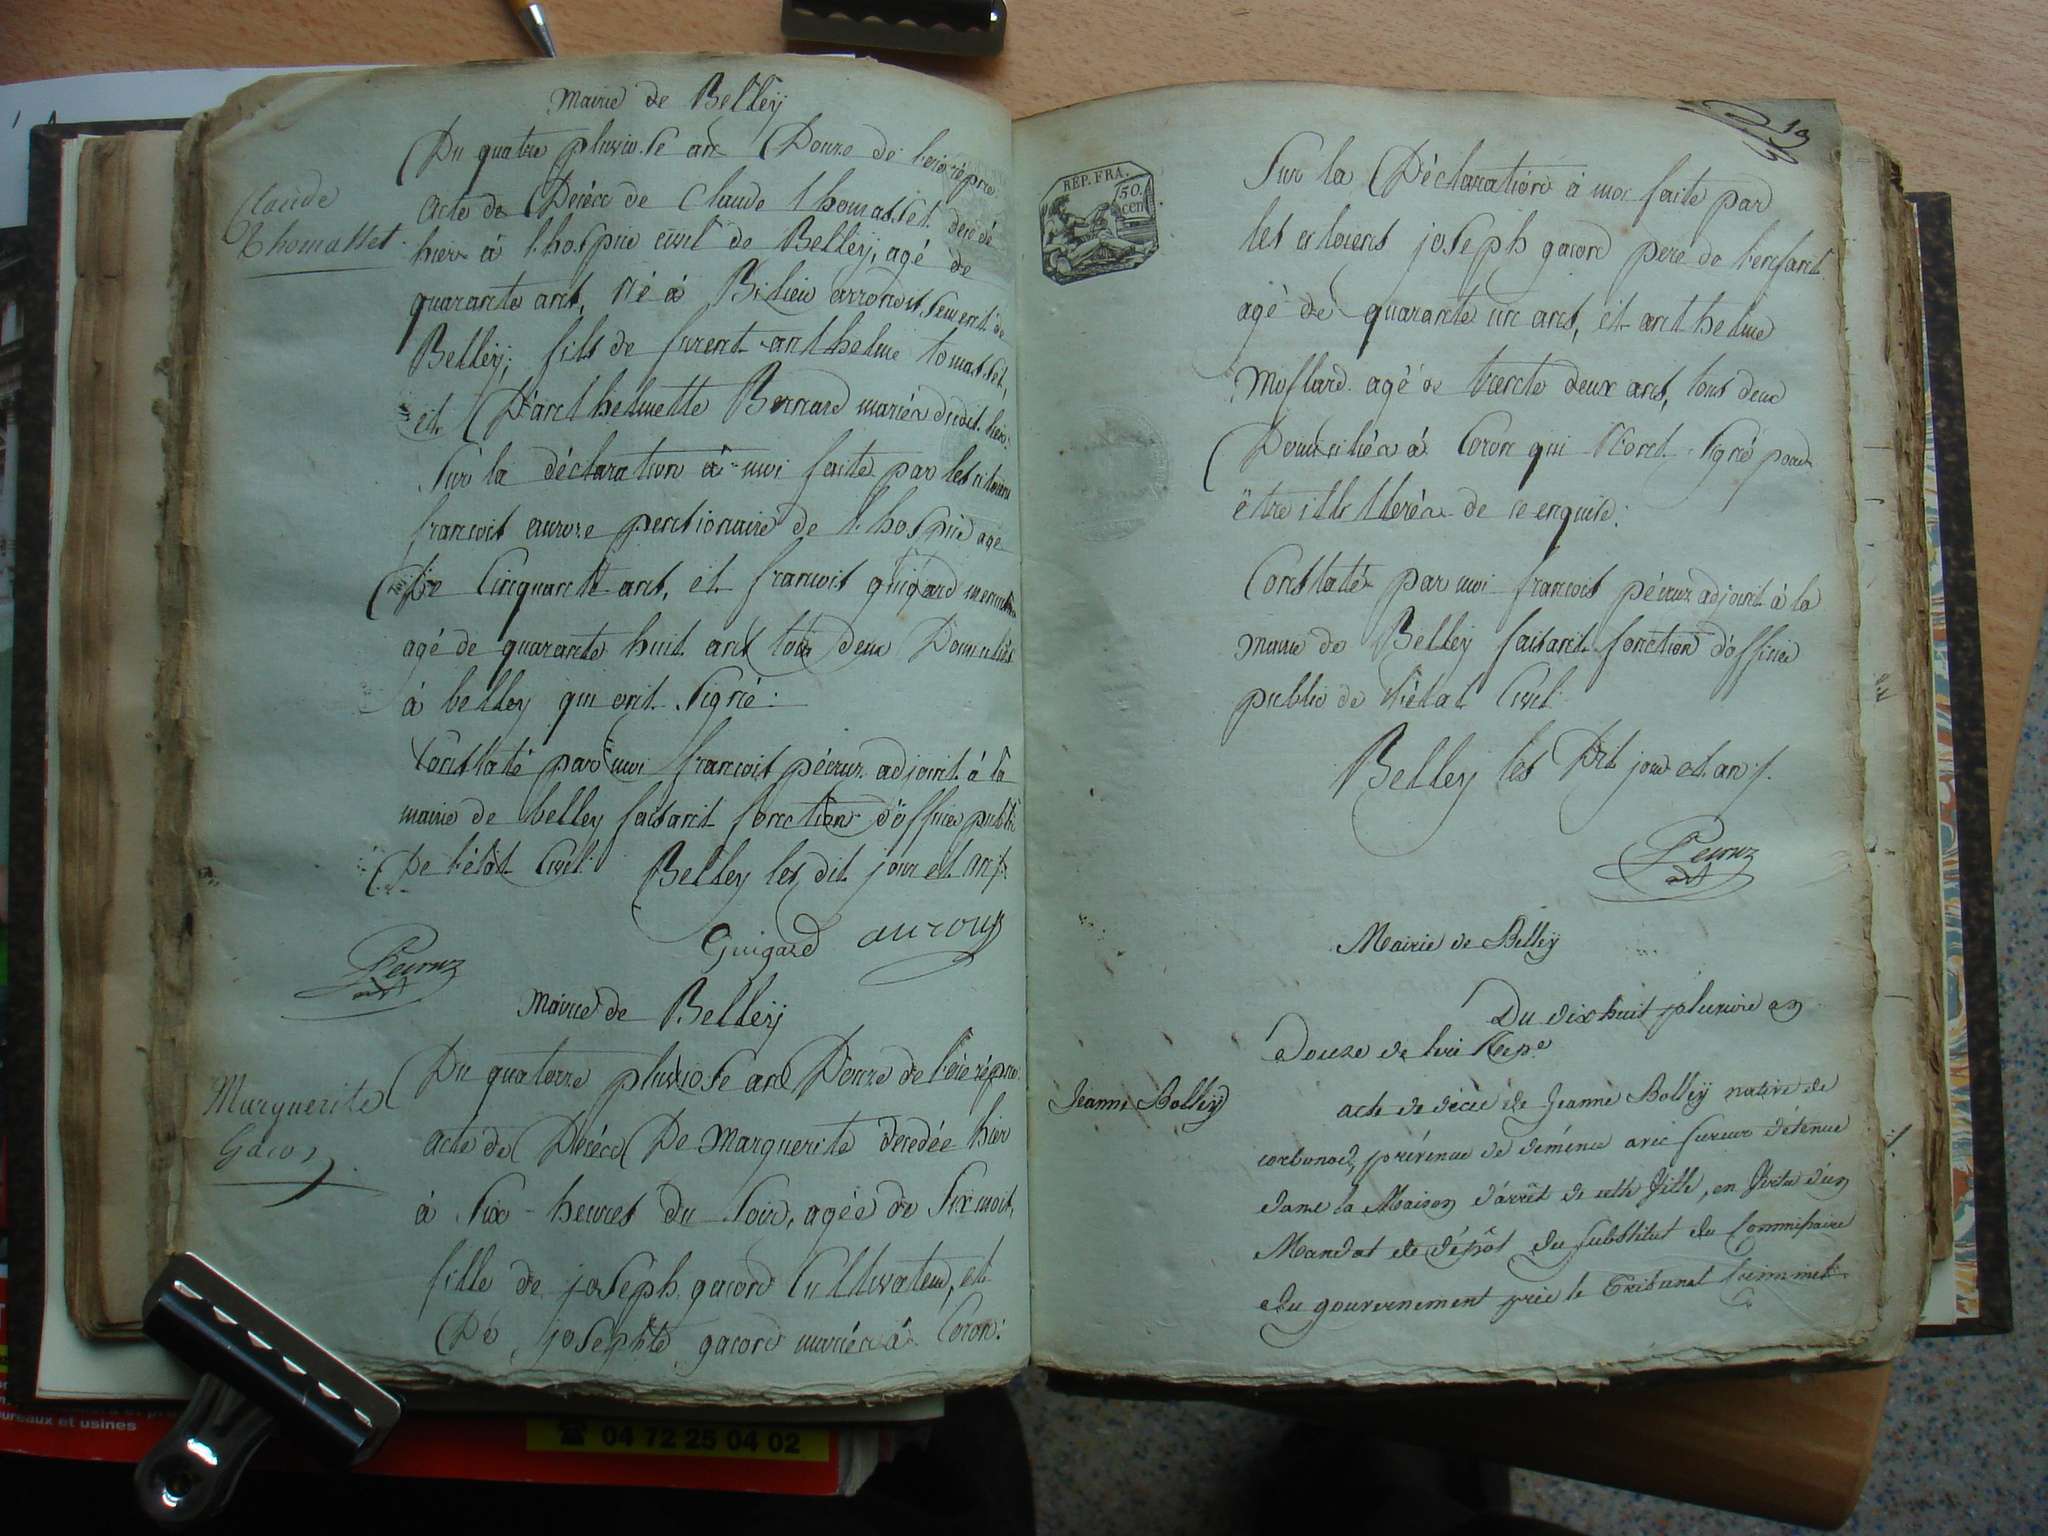 Mairie de Belley
Du quatre pluviose an Douze de l'ere répne
Claude
Thomasset
acte de Décéx de Claude thomasset décédé
hier à l'hospice civil de Belley, agé de
quarante ans, né à Bilieu arrondissement de
Belley; fils de furent anthelme tomasset,
et D'anthelmette Bernard mariéx dudit lieu.
Sur la déclaration à moi faite par les citoiens
françois auroze pentionaire de l'hospice agé
De Cinquante ans, et françois guigard menuisier
agé de quarante huit ans tous deux Domiciliés
à belley qui ont signé:
Constaté par moi françois pécruz adjoint à la
mairie de belley faisant fonction d'officier public
De l'état Civil Belley les dit jour et an ./.
Guigard auroux
Pecruz
adjt
Mairie de Belley
Du quatorze pluviose an Douze de l'ere répne
Marguerite
Gacon
acte de Décéce De Marguerite décédée hier
à six heures du soir, agée de six mois,
fille de joseph gacond Cultivateur, et
De josephte gacond mariéx à Coron:
19
REP. FRA.
50.
cent.
Sur la Déclaration à moi faite par
les citoiens joseph gacond pere de l'enfant
agé de quarante un ans, et anthelme
Mollard agé de trente deux ans, tous deux
Domiciliéx à Coron qui n'ont signé pour
être illitteréx de ce enquis:
Constaté par moi françois pécruz adjoint à la
mairie de Belley faisant fonction d'officier
public de l'état Civil
Belley les Dit jour et an ./.
Pecruz
adjt
Mairie de Belley
Du dix huit pluviose an
Douze de l'ere Repe
Jeanne Bolley
acte de décéé de Jeanne Bolley native de
corbonod, prévenue de démence avec fureur détenue
dans la Maison d'arrêt de cette Ville, en Vertu d'un
Mandat de dépôt du substitut du Commissaire
du gouvernement près le Tribunal Criminel
bureaux et usines
☎ 04 72 25 04 02